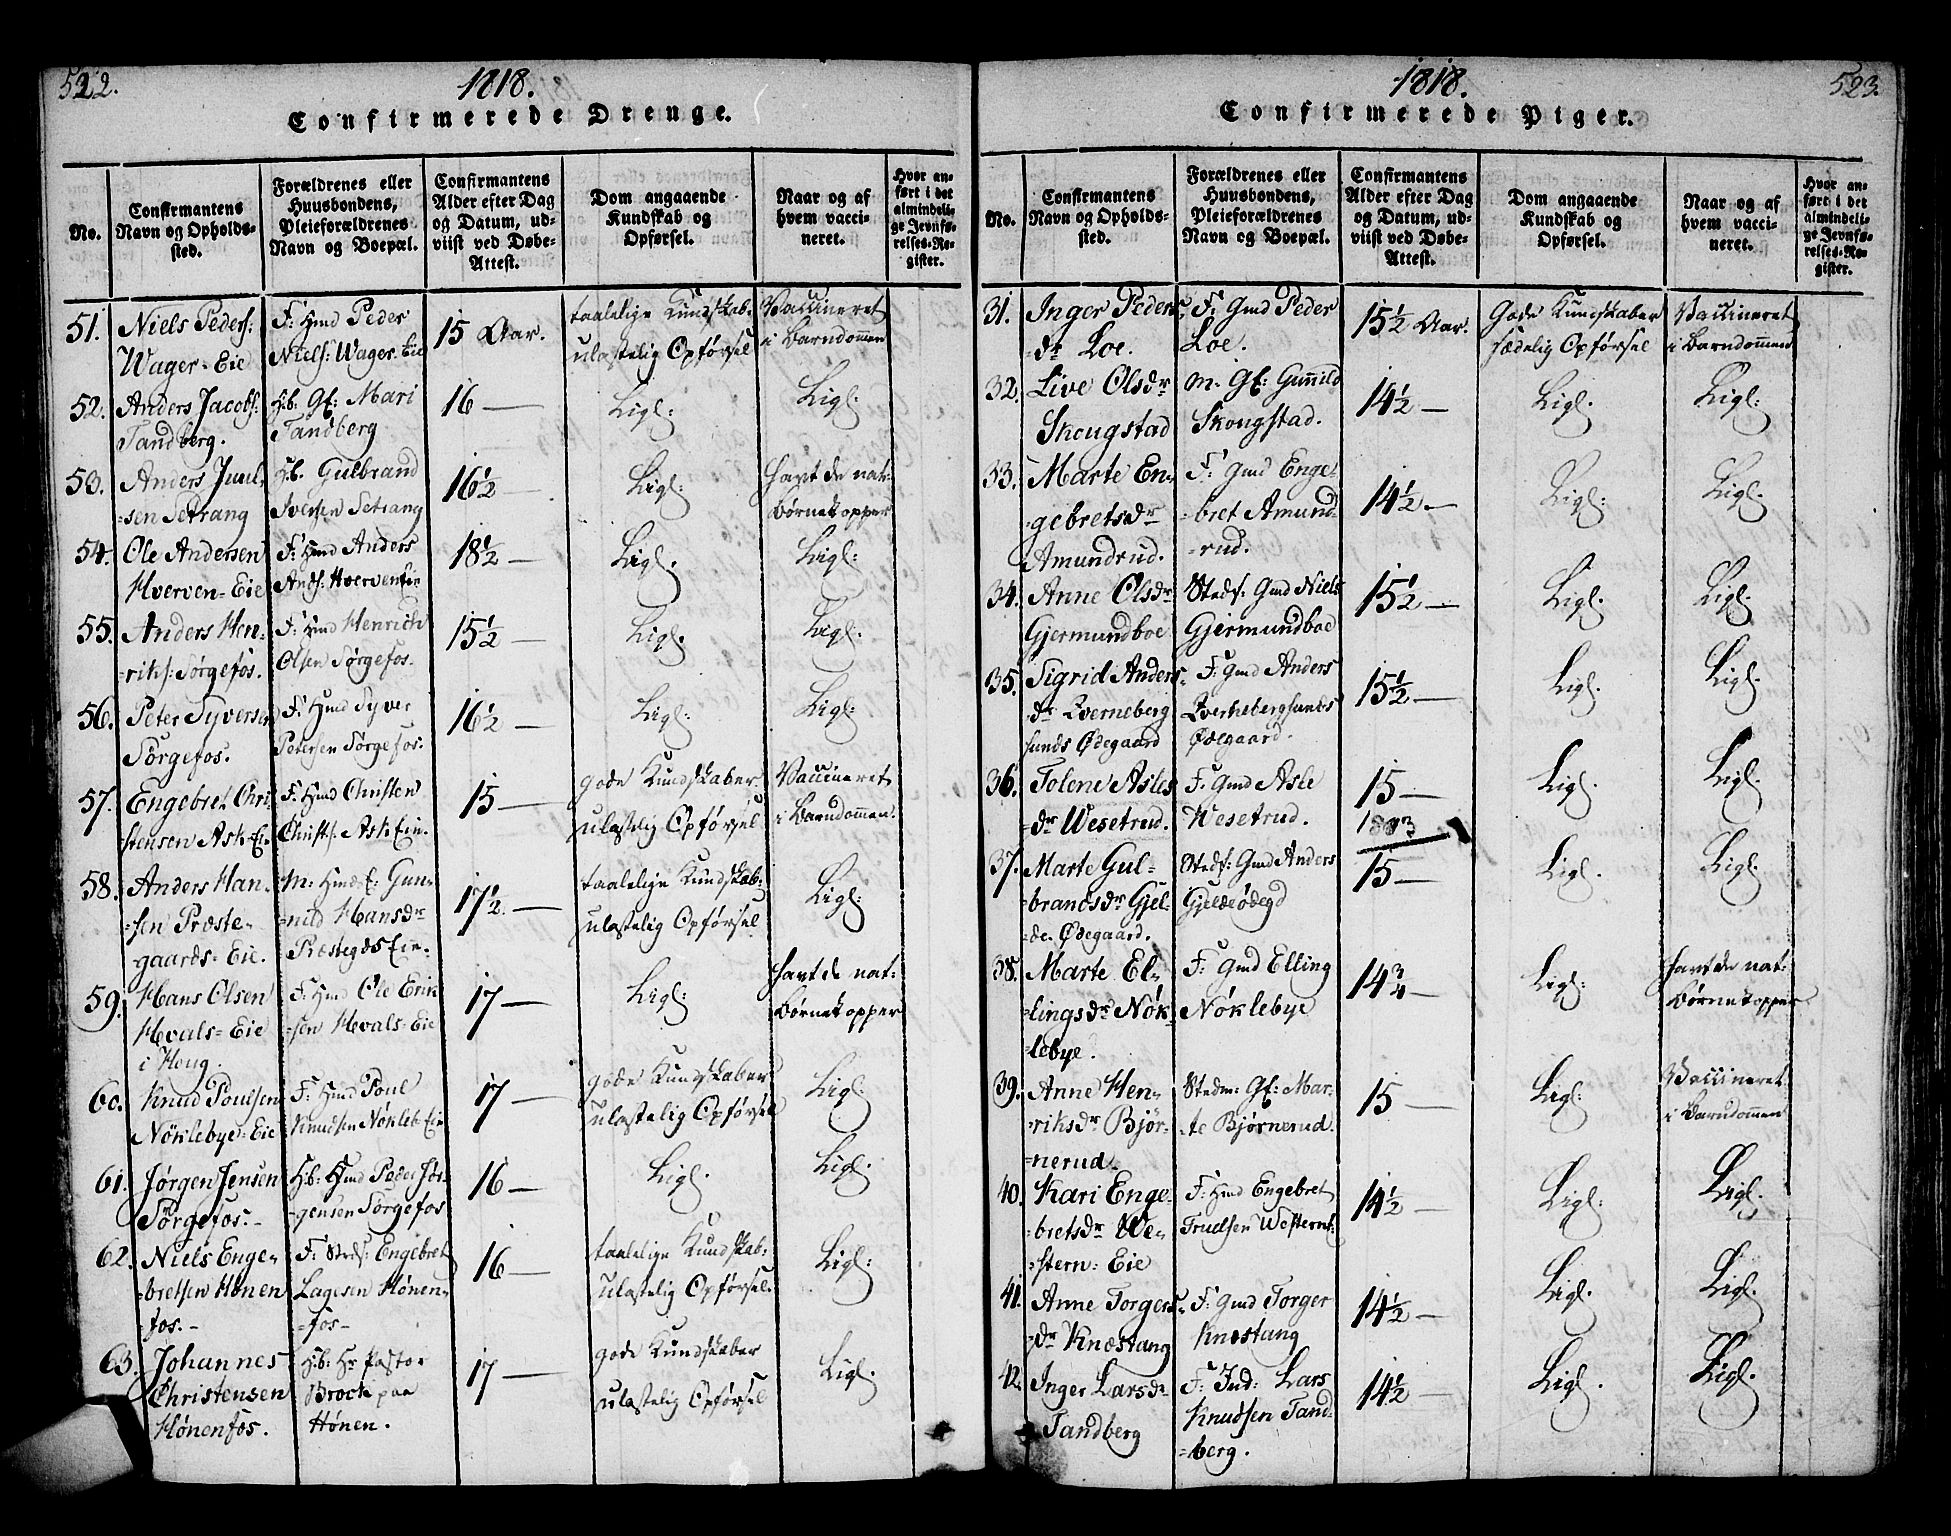 522.
1818.
Confirmerede Drenge.
No.
Confirmantens
Navn og Opholds-
sted.
Forældrenes eller
Huusbondens,
Pleieforældrenes
Navn og Boepæl.
Confirmantens
Alder efter Dag
og Datum, ud-
viist ved Døbe-
Attest.
Dom angaaende
Kundskab og
Opførsel.
Naar og af
hvem vacci-
neret.
Hvor an-
ført i det
almindeli-
ge Jevnfø-
relses-Re-
gister.
51.
Niels Peders:
Wager-Eie
F: Hmd Peder
Niels: Wager-Eie
15 Aar.
taalelige Kundskab.
ulastelig Opførsel
Vaccineret
i Barndommen
52.
Anders Jacobs:
Tandberg.
Hb: Gk: Mari
Tandberg
16 —
Ligl:
Ligl:
53.
Anders Juul-
sen Setrang
Hb. Gulbrand
Iversen Setrang
16½ —
Ligl:
havt de nat:
Børnekopper
54.
Ole Andersen
Hverven-Eie
F: Hmd Anders
Ands: Hverven Eie
18½ —
Ligl.
Ligl:
55.
Anders Hen-
riks: Sørgefos.
F: Hmd Henrich
Olsen Sørgefos.
15½ —
Ligl.
Ligl:
56.
Peter Syversen
Sørgefos.
F: Hmd Syver
Petersen Sørgefos.
16½ —
Ligl:
Ligl:
57.
Engebret Chri
stensen Ask-Eie
F: Hmd Christen
Christs: Ask Eie.
15 —
gode Kundskaber
ulastelig Opførsel
Vaccineret
i Barndommen.
58.
Anders Han-
sen Præste-
gaards-Eie.
M: Hmds E: Gun-
nild Hansdr
Præstegds Eie.
17½. —
taalelige Kundskab:
ulastelig Opførsel
Ligl:
59.
Hans Olsen
Hvals-Eie
i Houg.
F: Hmd Ole Erik
sen Hvals-Eie
17 —
Ligl:
havt de nat:
Børnekopper
60.
Knud Poulsen
Nöklebye-Eie
F: Hmd Poul
Knudsen Nökleb-Eie
17 —
gode Kundskaber
ulastelig Opførsel
Ligl:
61.
Jørgen Jensen
Sørgefos.-
Hb: Hmd Peder Jør-
gensen Sørgefos
16 —
Ligl.
Ligl:
62.
Niels Enge-
bretsen Hönen
fos.-
F: Strds: Engebret
Lagesen Hönen-
fos-
16 —
taalelige Kundskab:
ulastelig Opførsel.
Ligl:
63.
Johannes
Christensen
Hönenfos.
Hb: Hr Pastor
Brock paa
Hönen.
17 —
gode Kundskaber
ulastelig Opførsel
Ligl.
1818.
523.
Confirmerede Piger.
No.
Confirmantens
Navn og Opholds-
sted.
Forældrenes eller
Huusbondens,
Pleieforældrenes
Navn og Boepæl.
Confirmantens
Alder efter Dag
og Datum, ud-
viist ved Døbe-
Attest.
Dom angaaende
Kundskab og
Opførsel.
Naar og af
hvem vacci-
neret.
Hvor an-
ført i det
almindeli-
ge Jevnfø-
relses-Re-
gister.
31.
Inger Peders-
dr Loe.
F: Gmd Peder
Loe.
15½ Aar.
Gode Kundskaber
sædelig Opførsel
Vaccineret
i Barndommen
32.
Live Olsdr
Skougstad
M: Gk: Gunnild
Skougstad.
14½ —
Ligl.
Ligl:
33.
Marte En-
gebretsdr
Amundrud.
F: Gmd Enge-
bret Amund-
rud.
14½ —
Ligl:
Ligl.
34.
Anne Olsdr
Gjermundboe
Stedf: Gmd Niels
Gjermundboe
15½ —
Ligl.
Ligl.
35.
Sigrid Anders-
dr Qverneberg
sunds Ødegaard
F: Gmd Anders
Qvernebergsunds
Ødegaard.
15½ —
Ligl.
Ligl.
36.
Tolene Asles
dr Wesetrud.
F: Gmd Asle
Wesetrud.
15 —
1803
Ligl.
Ligl.
37.
Marte Gul-
brandsdr Gjel-
de Ødegaard.
Stedf: Gmd Anders
Gjeldeödegd
15 —
Ligl.
Ligl:
38.
Marte El-
lingsdr Nök-
lebye.
F: Gmd Elling
Nöklebye
14¾ —
Ligl:
havt de nat:
Børnekopper
39.
Anne Hen-
riksdr Bjør-
nerud.
Stedm: Gk: Mar-
te Bjørnerud.
15 —
Ligl:
Vaccineret
i Barndommen
40.
Kari Enge-
bretsdr We-
stern-Eie
F: Hmd Engebret
Trudsen Western:
14½ —
Ligl:
Ligl.
41.
Anne Torgers-
dr Knæstang
F: Gmd Torger
Knæstang
14½ —
Ligl.
Ligl.
42.
Inger Larsdr
Tandberg
F: Ind: Lars
Knudsen Tand-
berg.
14½ —
Ligl.
Ligl.